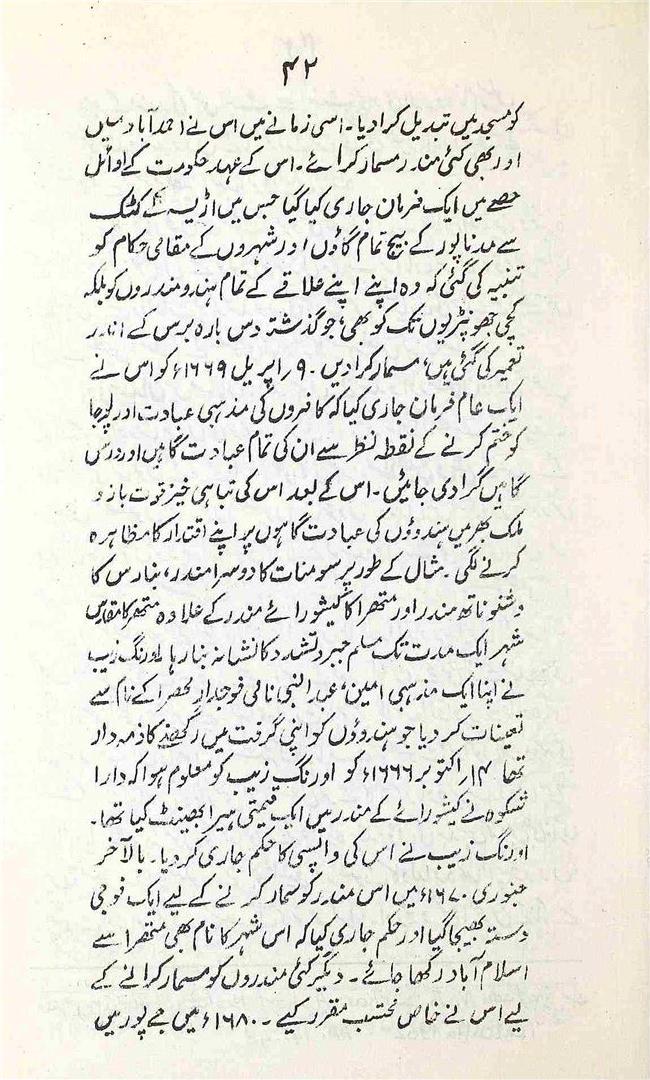 ۴۲
کو مسجد میں تبدیل کرا دیا۔ اسی زمانے میں اس نے احمد آباد میں
اور بھی کئی مندر مسمار کرائے۔ اس کے عہد حکومت کے اوائل
حصے میں ایک فرمان جاری کیا گیا جس میں اڑیسہ کے کٹک
سے مدناپور کے بیچ تمام گاؤں اور شہروں کے مقامی حکام کو
تنبیہ کی گئی کہ وہ اپنے اپنے علاقے کے تمام ہندو مندروں کو بلکہ
کچی جھونپڑیوں تک کو بھی، جو گذشتہ دس بارہ برس کے اندر
تعمیر کی گئی ہیں، مسمار کرا دیں۔ ۹؍ اپریل ۱۶۶۹ء کو اس نے
ایک عام فرمان جاری کیا کہ کافروں کی مذہبی عبادت اور پوجا
کو ختم کرنے کے نقطہ نظر سے ان کی تمام عبادت گاہیں اور درس
گاہیں گرا دی جائیں۔ اس کے بعد اس کی تباہی خیز قوت بازو
ملک بھر میں ہندوؤں کی عبادت گاہوں پر اپنے اقتدار کا مظاہرہ
کرنے لگی۔ مثال کے طور پر سومنات کا دوسرا مندر، بنارس کا
وشنو ناتھ مندر اور متھرا کا کیشو رائے مندر کے علاوہ متھرا کا مقدس
شہر ایک مدت تک مسلم جبر و تشدد کا نشانہ بنا رہا۔ اورنگ زیب
نے اپنا ایک مذہبی امین، عبدالنبی نامی فوجدار کے نام سے
تعینات کر دیا جو ہندوؤں کو اپنی گرفت میں رکھنے کا ذمہ دار
تھا ۱۴؍ اکتوبر ۱۶۶۶ء کو اورنگ زیب کو معلوم ہوا کہ دارا
شکوہ نے کیشو رائے کے مندر میں ایک قیمتی ہیرا بھینٹ کیا تھا۔
اورنگ زیب نے اس کی واپسی کا حکم جاری کر دیا۔ بالآخر
جنوری ۱۶۷۰ء میں اس مندر کو مسمار کرنے کے لیے ایک فوجی
دستہ بھیجا گیا اور حکم جاری کیا کہ اس شہر کا نام بھی متھرا سے
اسلام آباد رکھا جائے۔ دیگر کئی مندروں کو مسمار کرانے کے
لیے اس نے خاص محتسب مقرر کیے۔ ۱۶۸۰ء میں جے پور میں